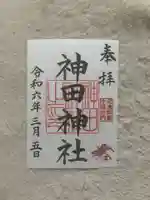 奉拝
神田神社
令和六年三月五日